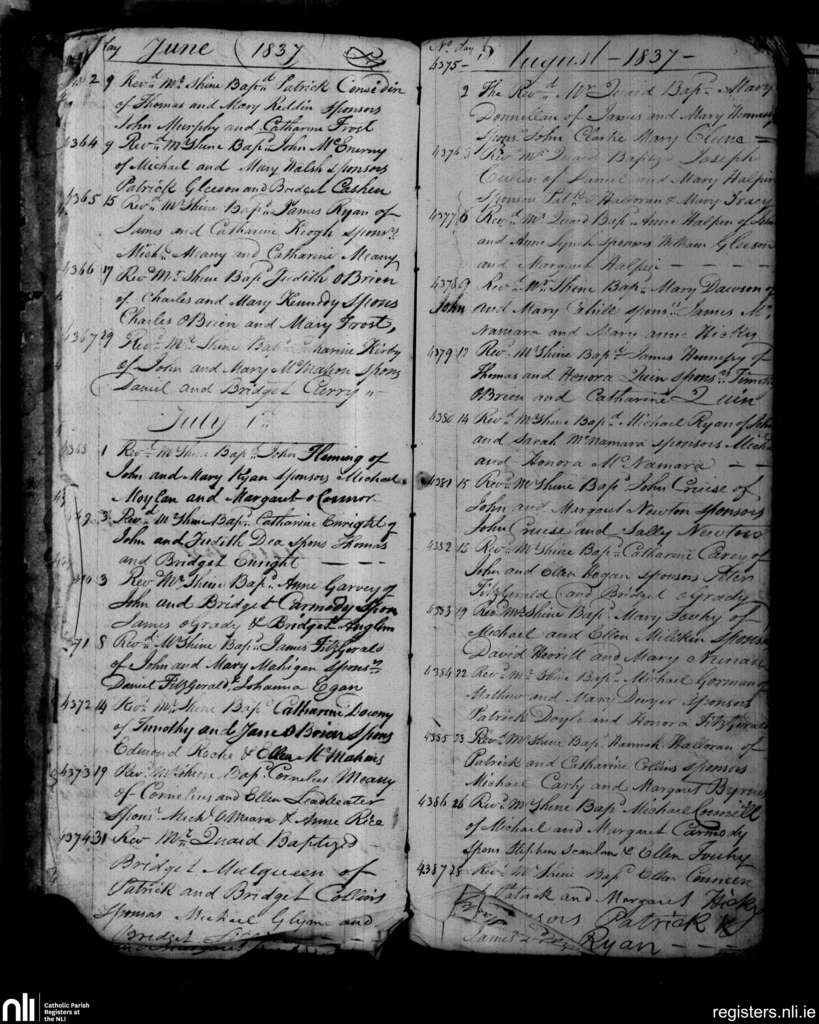 Day June 1837
2 9 Revd Mr Shine Bapd Patrick Considin
of Thomas and Mary Reddin Sponsors
John Murphy and Catharine Frost
4364 9 Revd Mr Shine Bapd John McEnerny
of Michael and Mary Walsh Sponsors
Patrick Gleeson and Bridget Cashen
4365 15 Revd Mr Shine Bapd James Ryan of
James and Catharine Keogh Sponrs
Michl Meany and Catharine Meany
4366 17 Revd Mr Shine Bapd Judith OBrien
of Charles and Mary Kennedy Spons
Charles OBrien and Mary Frost,
4367 29 Revd Mr Shine Bapd Catharine Kirby
of John and Mary McMahon Spons
Daniel and Bridget Curry
July 1st
1 Revd Mr Shine Bapd John Fleming of
John and Mary Ryan Sponsors Michael
Moylan and Margaret oConnor
3 Revd Mr Shine Bapd Catharine Enright of
John and Judith Dea Spons Thomas
and Bridget Enright
3 Revd Mr Shine Bapd Anne Garvey of
John and Bridget Carmody Spon
James oGrady & Bridget Anglim
71 8 Revd Mr Shine Bapd James FitzGerald
of John and Mary Mahigan Sponsrs
Daniel FitzGerald & Johanna Egan
4372 14 Revd Mr Shine Bapd Catharine Downy
of Timothy and Jane OBrien Spons
Edmond Roche & Ellen McMahon
4373 19 Revd Mr Shine Bapd Cornelius Meany
of Cornelius and Ellen Leadbeater
Sponsr Michl OMeara & Anne Rice
4374 31 Revd Mr Quaid Baptized
Bridget Mulqueen of
Patrick and Bridget Collins
Sponsors Michael Glynn and
Bridget
No Day August - 1837 -
4375 -
2 The Revd Mr Quaid Bapd Mary
Donnellan of James and Mary Hennessy
Spons John Clarke Mary Clune
4376 3 Revd Mr Quaid Baptzd Joseph
Cullen of Daniel and Mary Halpin
Sponsors Patk Halloran & Mary Tracy
4377 6 Revd Mr Quaid Bapd Anne Halpin of John
and Anne Lynch Sponsors William Gleeson
and Margaret Halpin
4378 9 Revd Mr Shine Bapd Mary Dawson of
John and Mary Cahill Sponsrs James Mc
Namara and Mary anne Hickey
4379 12 Revd Mr Shine Bapd James Hennessy of
Thomas and Honora Quin Sponsrs Timothy
OBrien and Catharine Quin
4380 14 Revd Mr Shine Bapd Michael Ryan of John
and Sarah McNamara Sponsors Michl
and Honora McNamara
4381 15 Revd Mr Shine Bapd John Cruise of
John and Margaret Newton Sponsors
John Cruise and Sally Newton
4382 15 Revd Mr Shine Bapd Catharine Carey of
John and Ellen Hogan Sponsors Peter
FitzGerald and Bridget oGrady
4383 19 Revd Mr Shine Bapd Mary Touhy of
Michael and Ellen Sponsors
David Hewitt and Mary Nunan
4384 22 Revd Mr Shine Bapd Michael Gorman of
Matthew and Mary Dwyer Sponsors
Patrick Doyle and Honora FitzGerald
4385 23 Revd Mr Shine Bapd Hannah Halloran of
Patrick and Catharine Collins Sponsors
Michael Carty and Margaret Byrnes
4386 26 Revd Mr Shine Bapd Michael Connell
of Michael and Margaret Carmody
Spons Stephen Scanlan & Ellen Touhy
4387 28 Revd Mr Shine Bapd Ellen
of Patrick and Margaret Hickey
Sponsors Patrick &
James Ryan
nli
Catholic Parish
Registers at
the NLI
registers.nli.ie